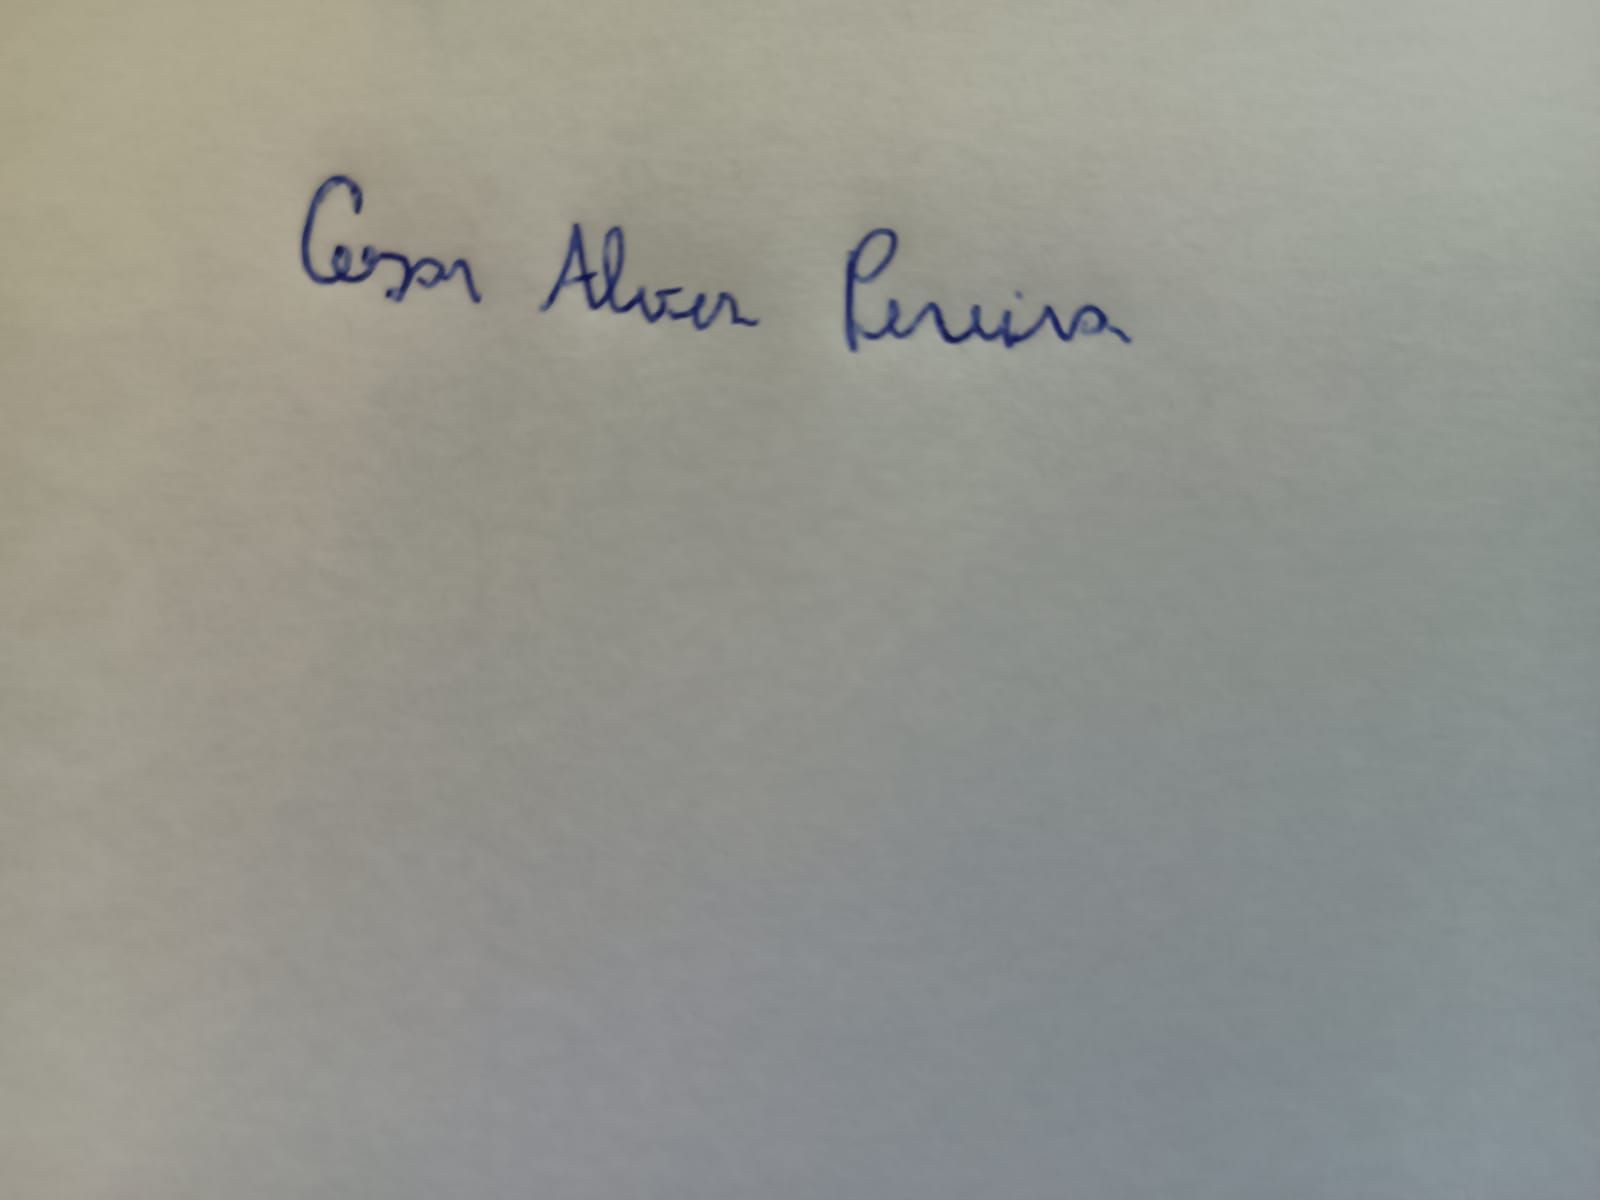 Cesar Alves Pereira